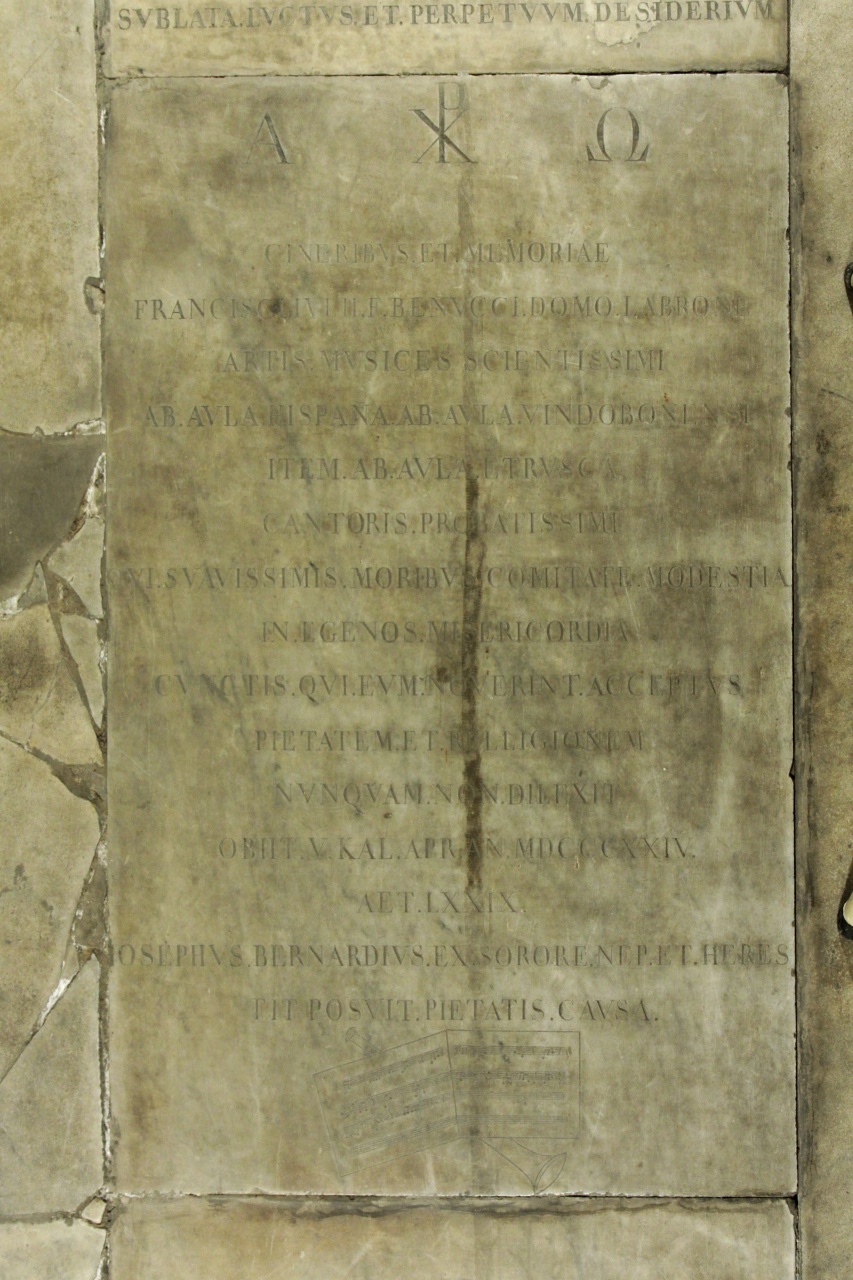 SVBLATA.LVCTVS.ET.PERPETVVM.DESIDERIVM
Α ☧ Ω
CINERIBVS.ET.MEMORIAE
FRANCISCI.IVLII.F.BENVCCI.DOMO.LABRONE
ARTIS.MVSICES.SCIENTISSIMI
AB.AVLA.HISPANA.AB.AVLA.VINDOBONENSI
ITEM.AB.AVLA.ETRVSCA
CANTORIS.PROBATISSIMI
QVI.SVAVISSIMIS.MORIBVS.COMITATE.MODESTIA
IN.EGENOS.MISERICORDIA
CVNCTIS.QVI.EVM.NOVERINT.ACCEPTVS
PIETATEM.ET.RELLIGIONEM
NVNQVAM.NON.DILEXIT
OBIIT.V.KAL.APR.AN.MDCCCXXIV.
AET.LXXIX.
IOSEPHVS.BERNARDIVS.EX.SORORE.NEP.ET.HERES
TIT.POSVIT.PIETATIS.CAVSA.